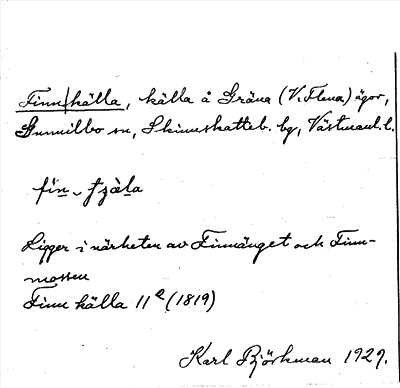 Finnkälla, källa å Gräna (V. Flena) ägor,
Gunnilbo sn, Skinnskatteb. bg, Västmanl. l.
Ligger i närheten av Finnänget och Finn-
mossen
Finn källa 11 (1819)
Karl Björkman 1929.